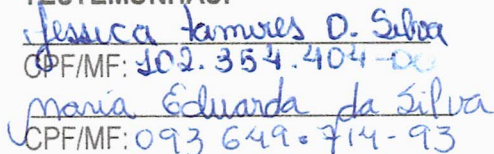 TESTEMUNHAS:
Jessica Tamires D. Silva
CPF/MF: 102.354.404-00
Maria Eduarda da Silva
CPF/MF: 093 649.714-93